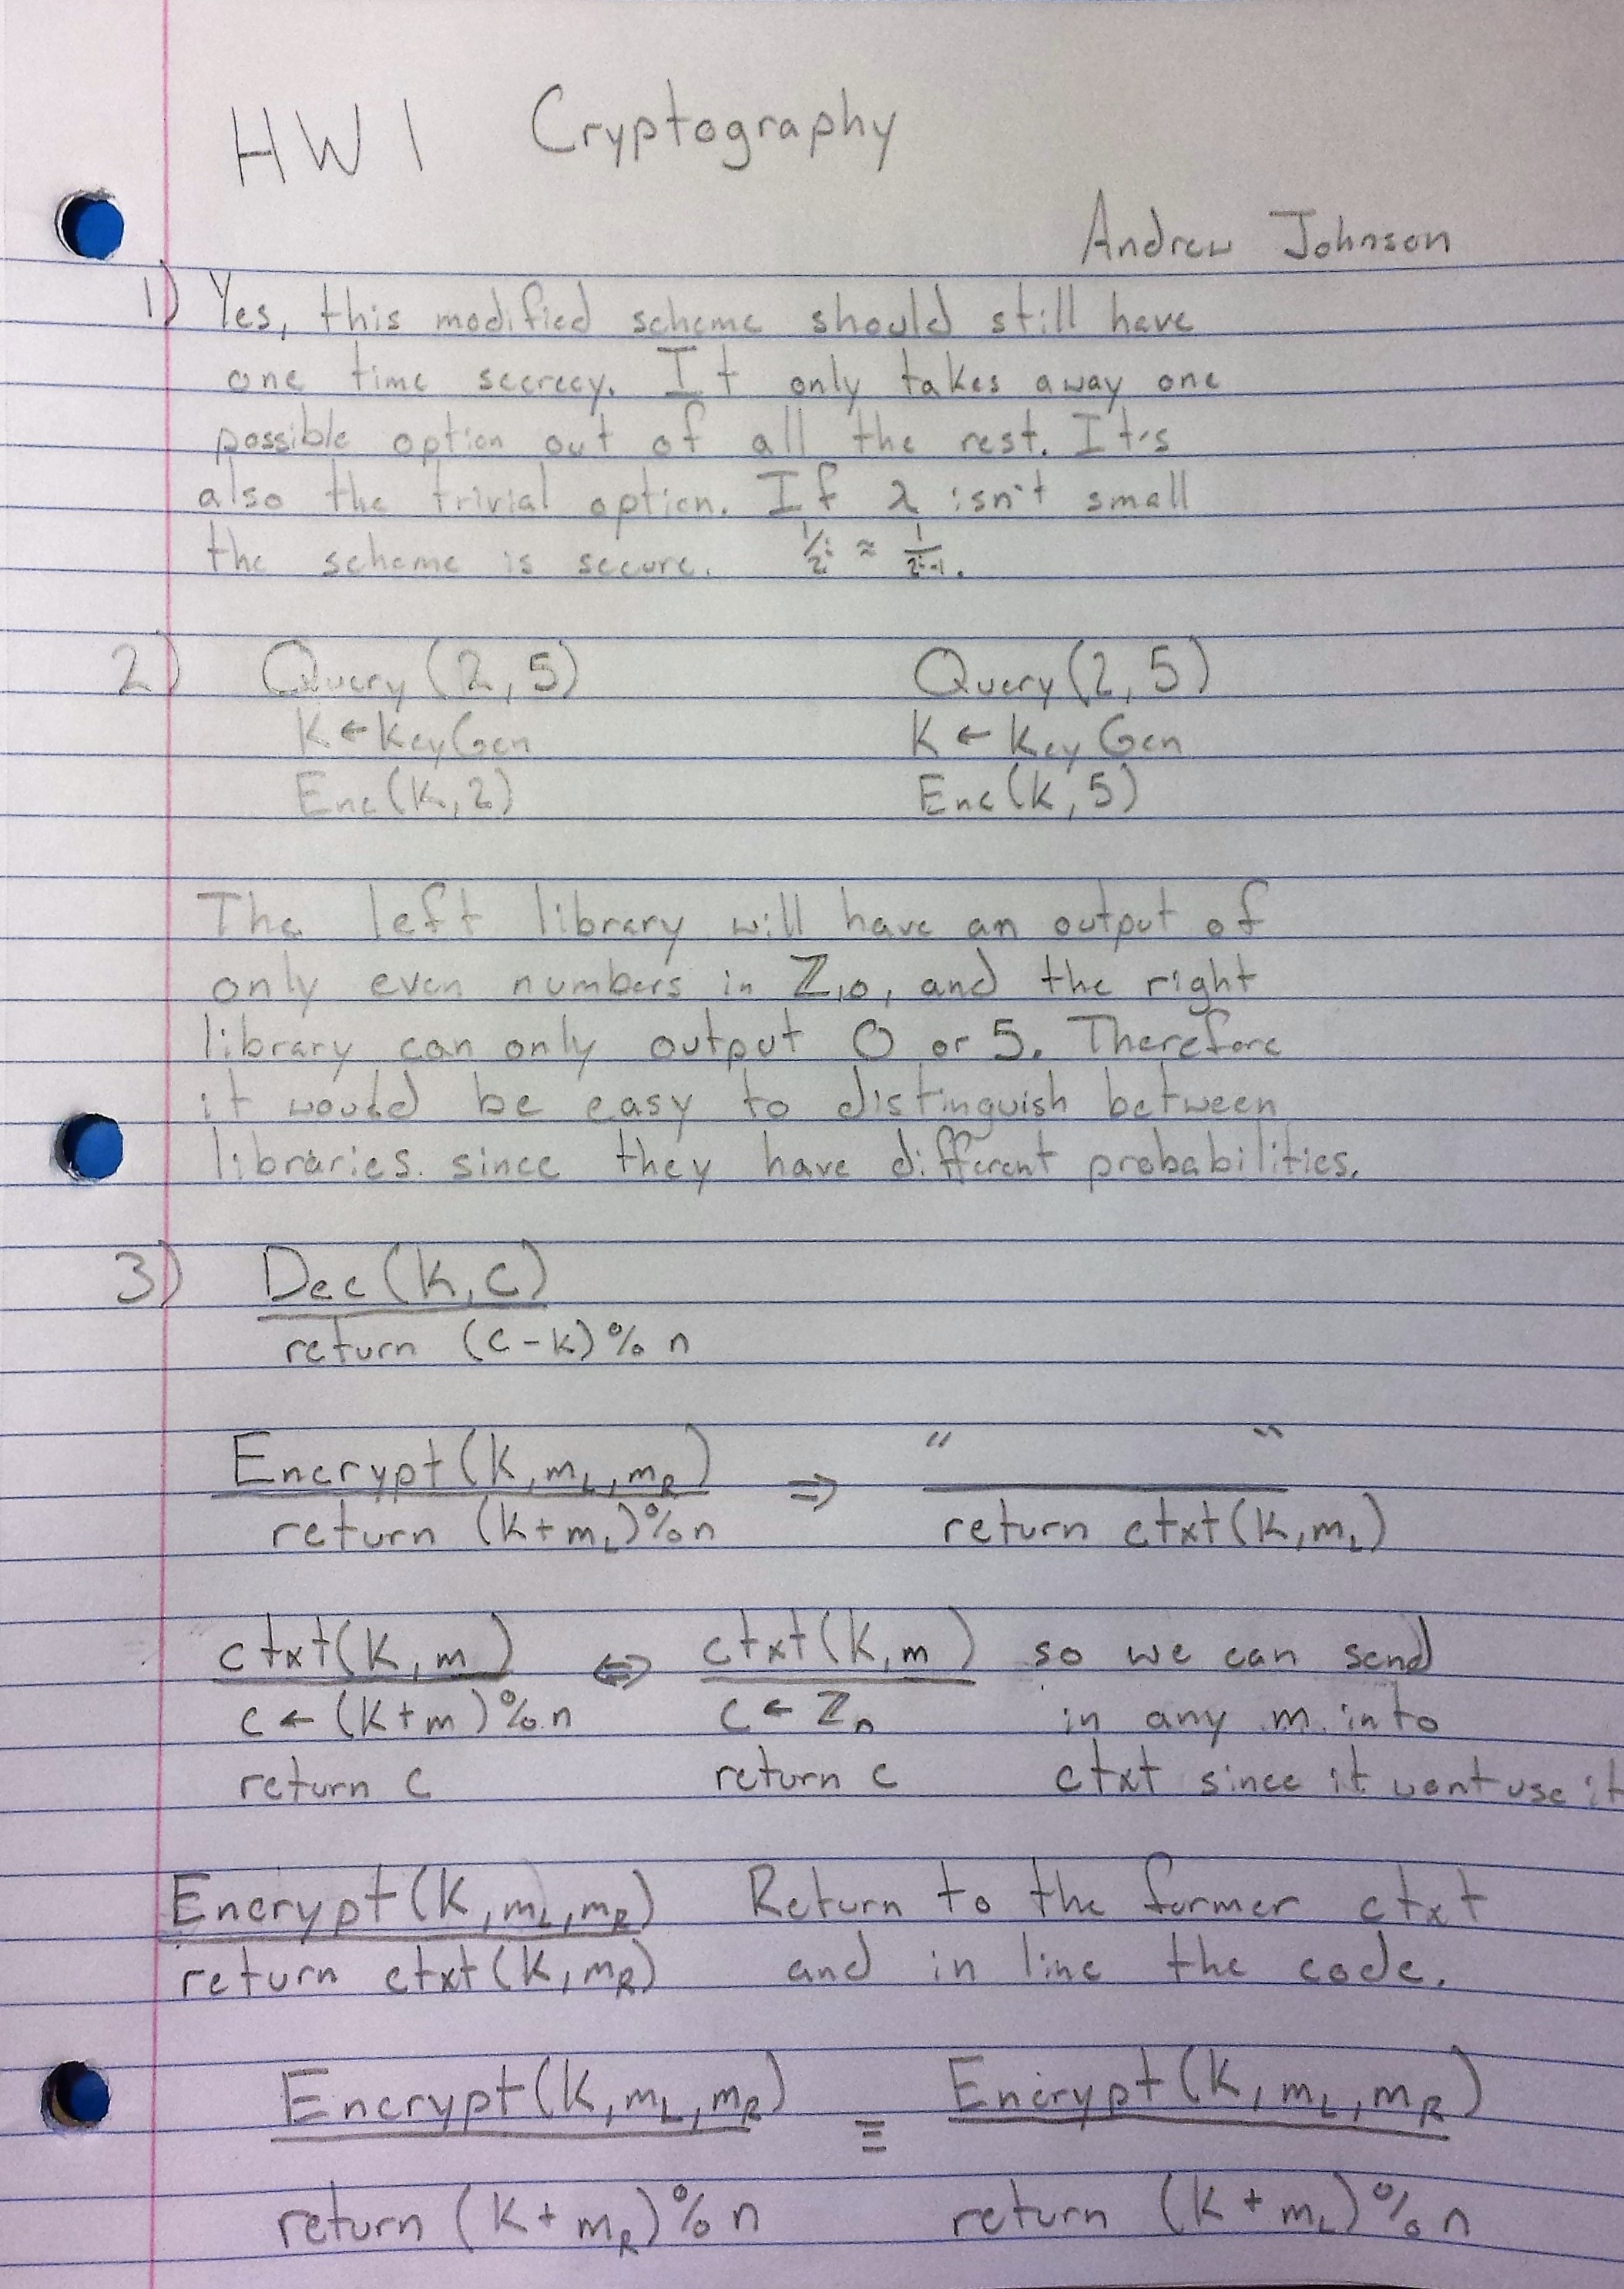 HW 1 Cryptography
Andrew Johnson
1) Yes, this modified scheme should still have
one time secrecy. It only takes away one
possible option out of all the rest. It's
also the trivial option. If λ isn't small
the scheme is secure. 1/2^λ ≈ 1/2^λ-1.
2) Query (2, 5) Query (2, 5)
K ← KeyGen K ← Key Gen
Enc(K, 2) Enc(K, 5)
The left library will have an output of
only even numbers in ℤ₁₀, and the right
library can only output 0 or 5. Therefore
it would be easy to distinguish between
libraries. since they have different probabilities.
3) Dec(K, C)
return (c - k) % n
Encrypt(K, m_L, m_R) ⇒ " "
return (K + m_L) % n return ctxt(K, m_L)
ctxt(K, m) ⇔ ctxt(K, m) so we can send
c ← (K + m) % n c ← ℤₙ in any m into
return c return c ctxt since it wont use it
Encrypt(K, m_L, m_R) Return to the former ctxt
return ctxt(K, m_R) and in line the code.
Encrypt(K, m_L, m_R) ≡ Encrypt(K, m_L, m_R)
return (K + m_R) % n return (K + m_L) % n